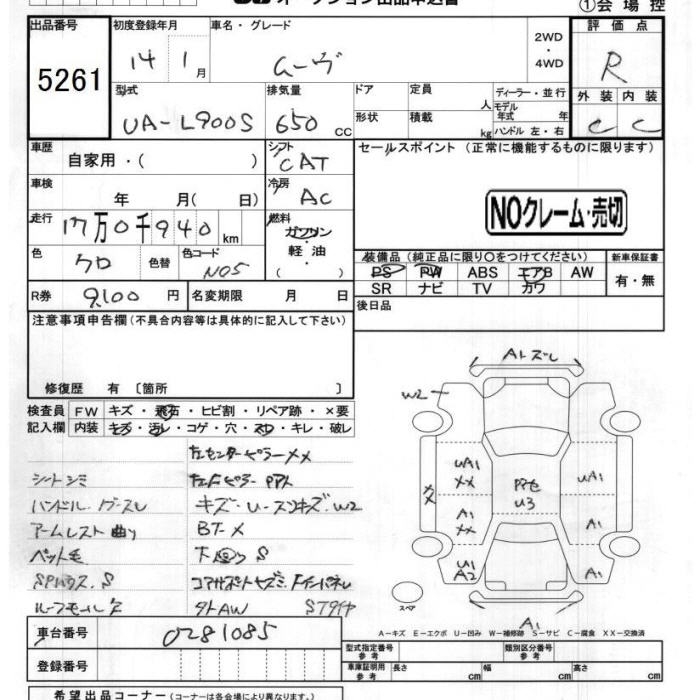 オークション出品申込書
①会場控
出品番号 初度登録年月 車名・グレード 評価点
5261
14 年 1 月 ムーヴ 2WD ・ 4WD R
型式 排気量 ドア 定員 人 ディーラー・並行 外装 内装
UA-L900S 650 CC 形状 積載 kg モデル年式 年 ハンドル 左・右 C C
車歴 シフト セールスポイント (正常に機能するものに限ります)
自家用・( ) CAT
車検 年 月( 日) 冷房 AC
NOクレーム・売切
走行 17万0千940 km 燃料 ガソリン・軽油 ( )
色 クロ 色替 色コード N05
装備品 (純正品に限り○をつけてください) 新車保証書
PS PW ABS エアB AW 有・無
SR ナビ TV カワ
R券 9,100 円 名変期限 月 日
後日品
注意事項申告欄(不具合内容等は具体的に記入して下さい)
修復歴 有 〔箇所 〕
検査員 FW キズ・飛石・ヒビ割・リペア跡・×要
記入欄 内装 キズ・汚レ・コゲ・穴・スレ・キレ・破レ
シートシミ
ハンドル
アームレスト曲り
ペット毛
キズ・U・スリキズ・W2
BT-X
下廻りS
外AW
Aトズレ
W2
UA1
XX
A1
XX
U1
A2
XX
U3
UA1
A1
A1
A1
スペア
A-キズ E-エクボ U-凹み W-補修跡 S-サビ C-腐食 XX-交換済
車台番号 0281085
登録番号
型式指定番号 参考 類別区分番号 参考
車庫証明用 参考 長さ cm 幅 cm 高さ cm
希望出品コーナー (コーナーは各会場により異なります。)